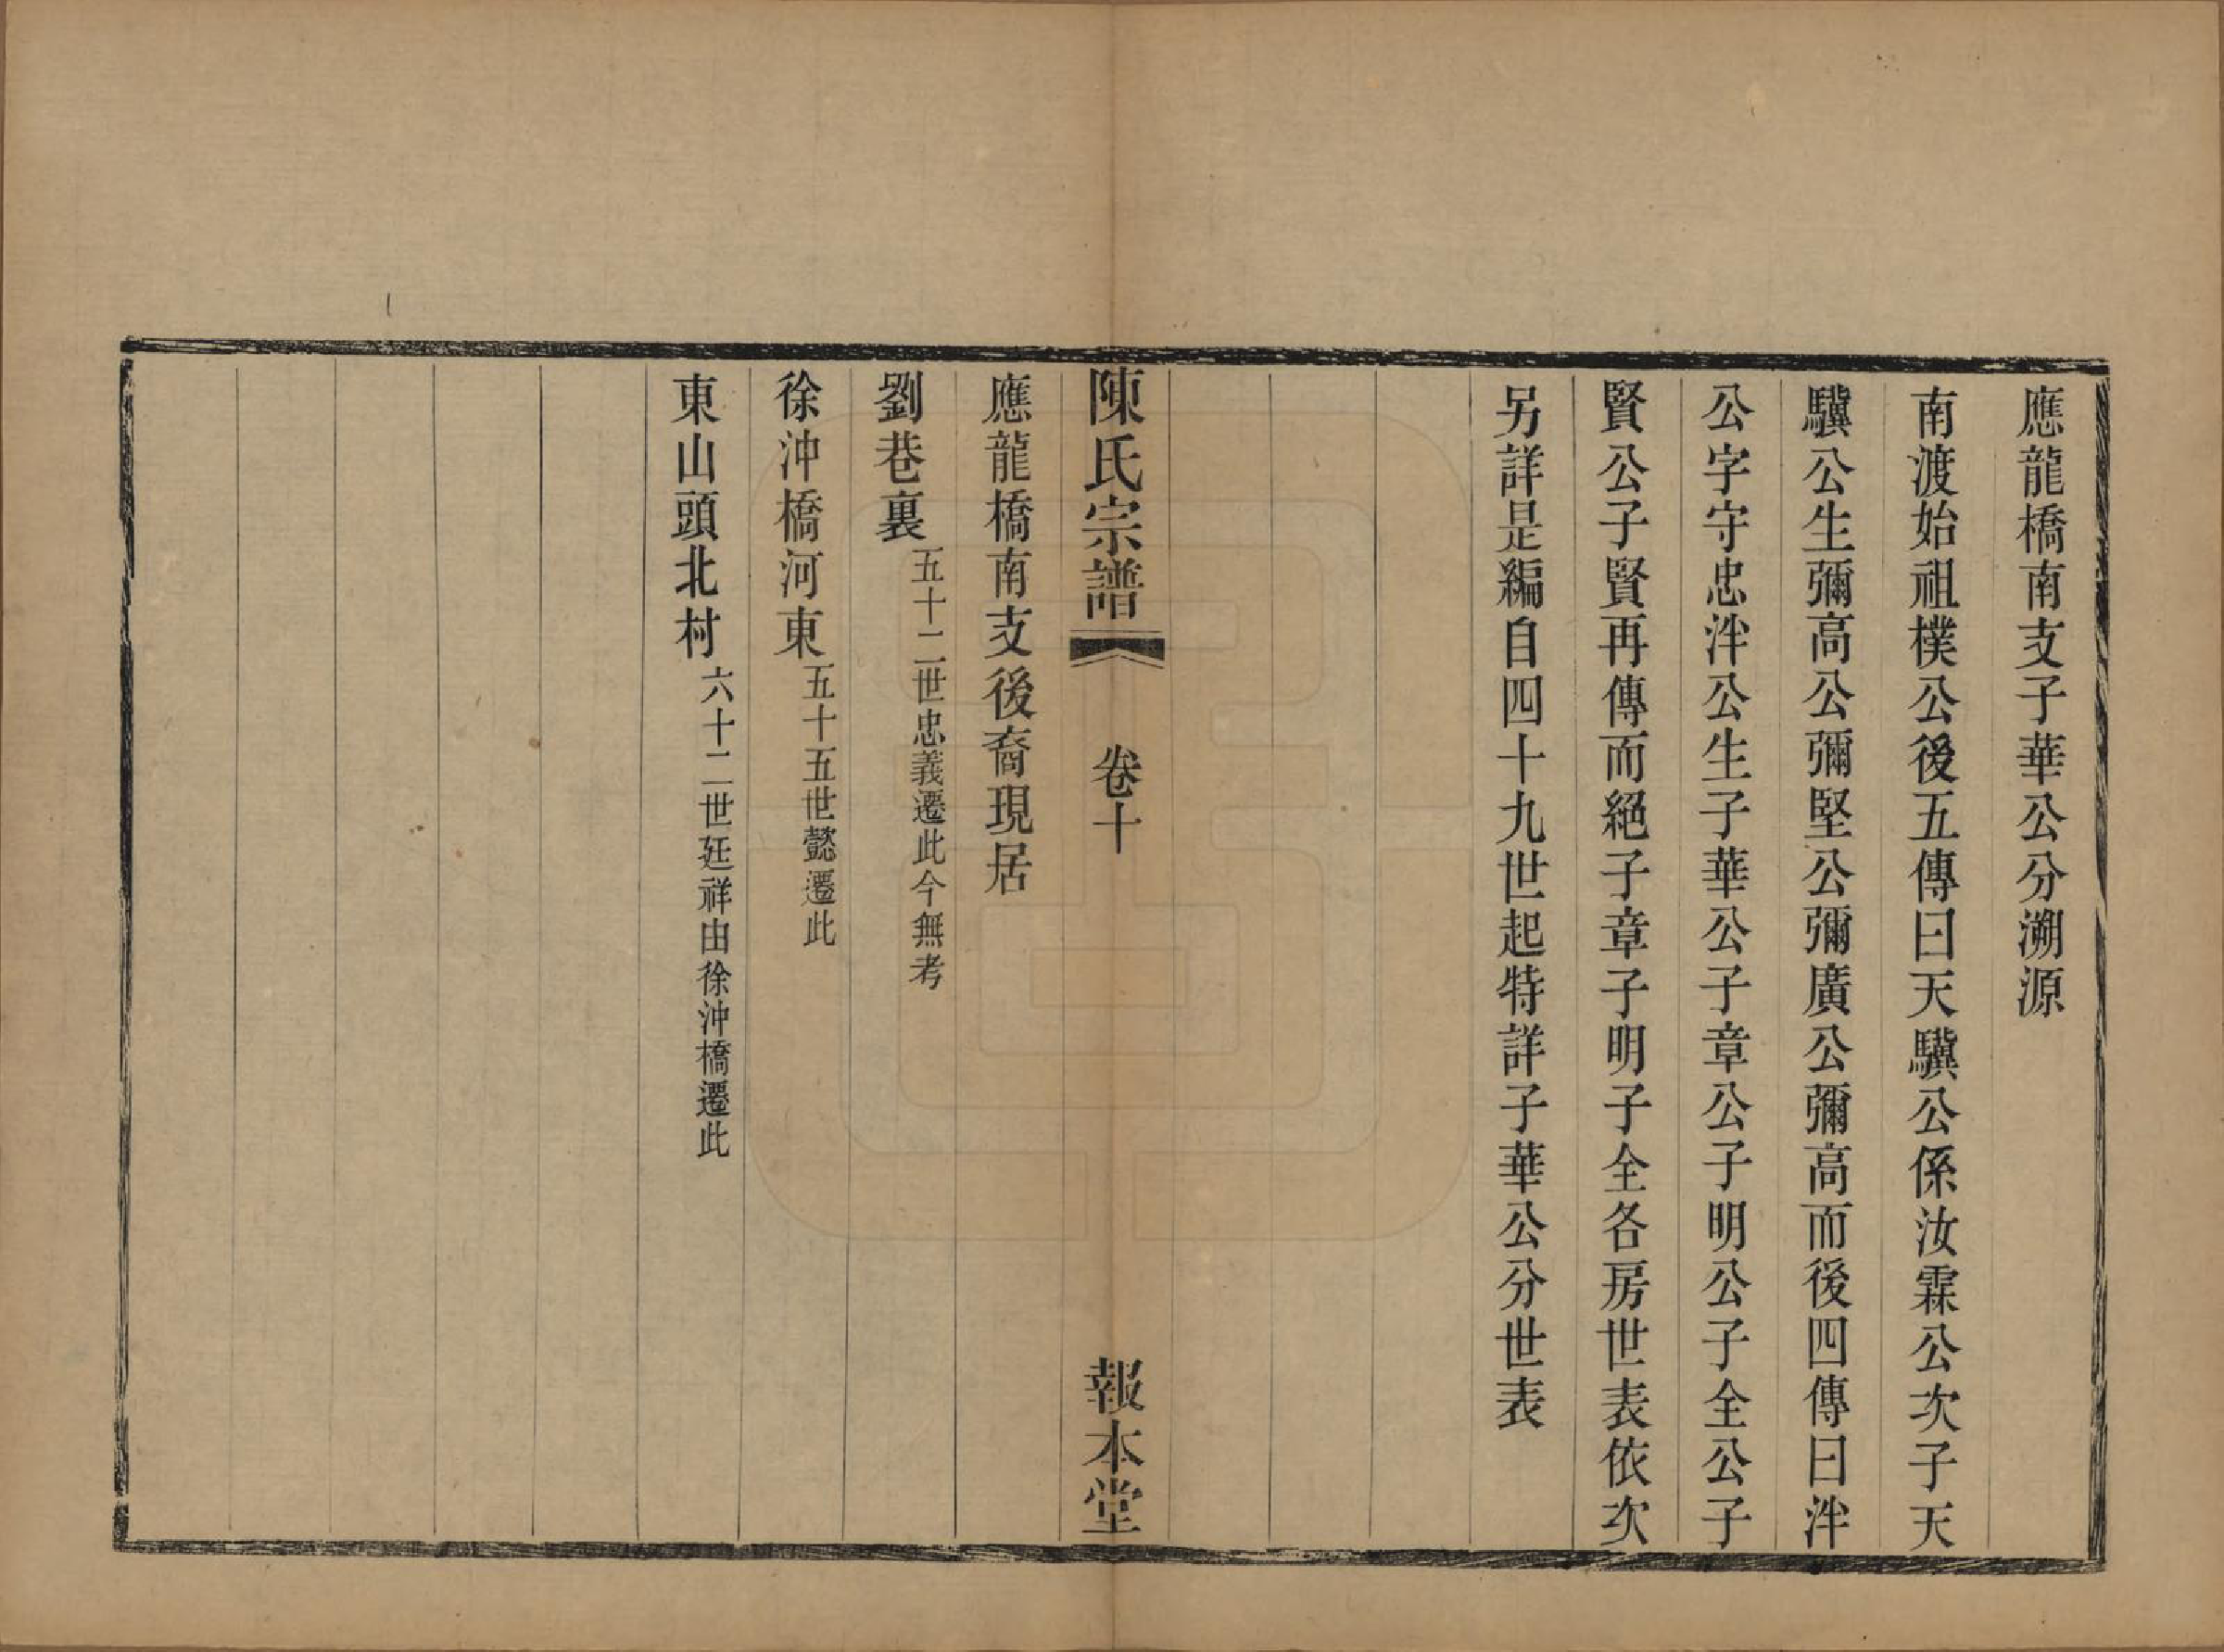 應龍橋南支子華公分溯源
南渡始祖樸公後五傳曰天驥公係汝霖公次子天
驥公生彌高公彌堅公彌廣公彌高而後四傳曰泮
公字守忠泮公生子華公子章公子明公子全公子
賢公子賢再傳而絕子章子明子全各房世表依次
另詳是編自四十九世起特詳子華公分世表
陳氏宗譜 卷十 報本堂
應龍橋南支後裔現居
劉巷裏 五十二世忠義遷此今無考
徐沖橋河東 五十五世懿遷此
東山頭北村 六十二世廷祥由徐沖橋遷此